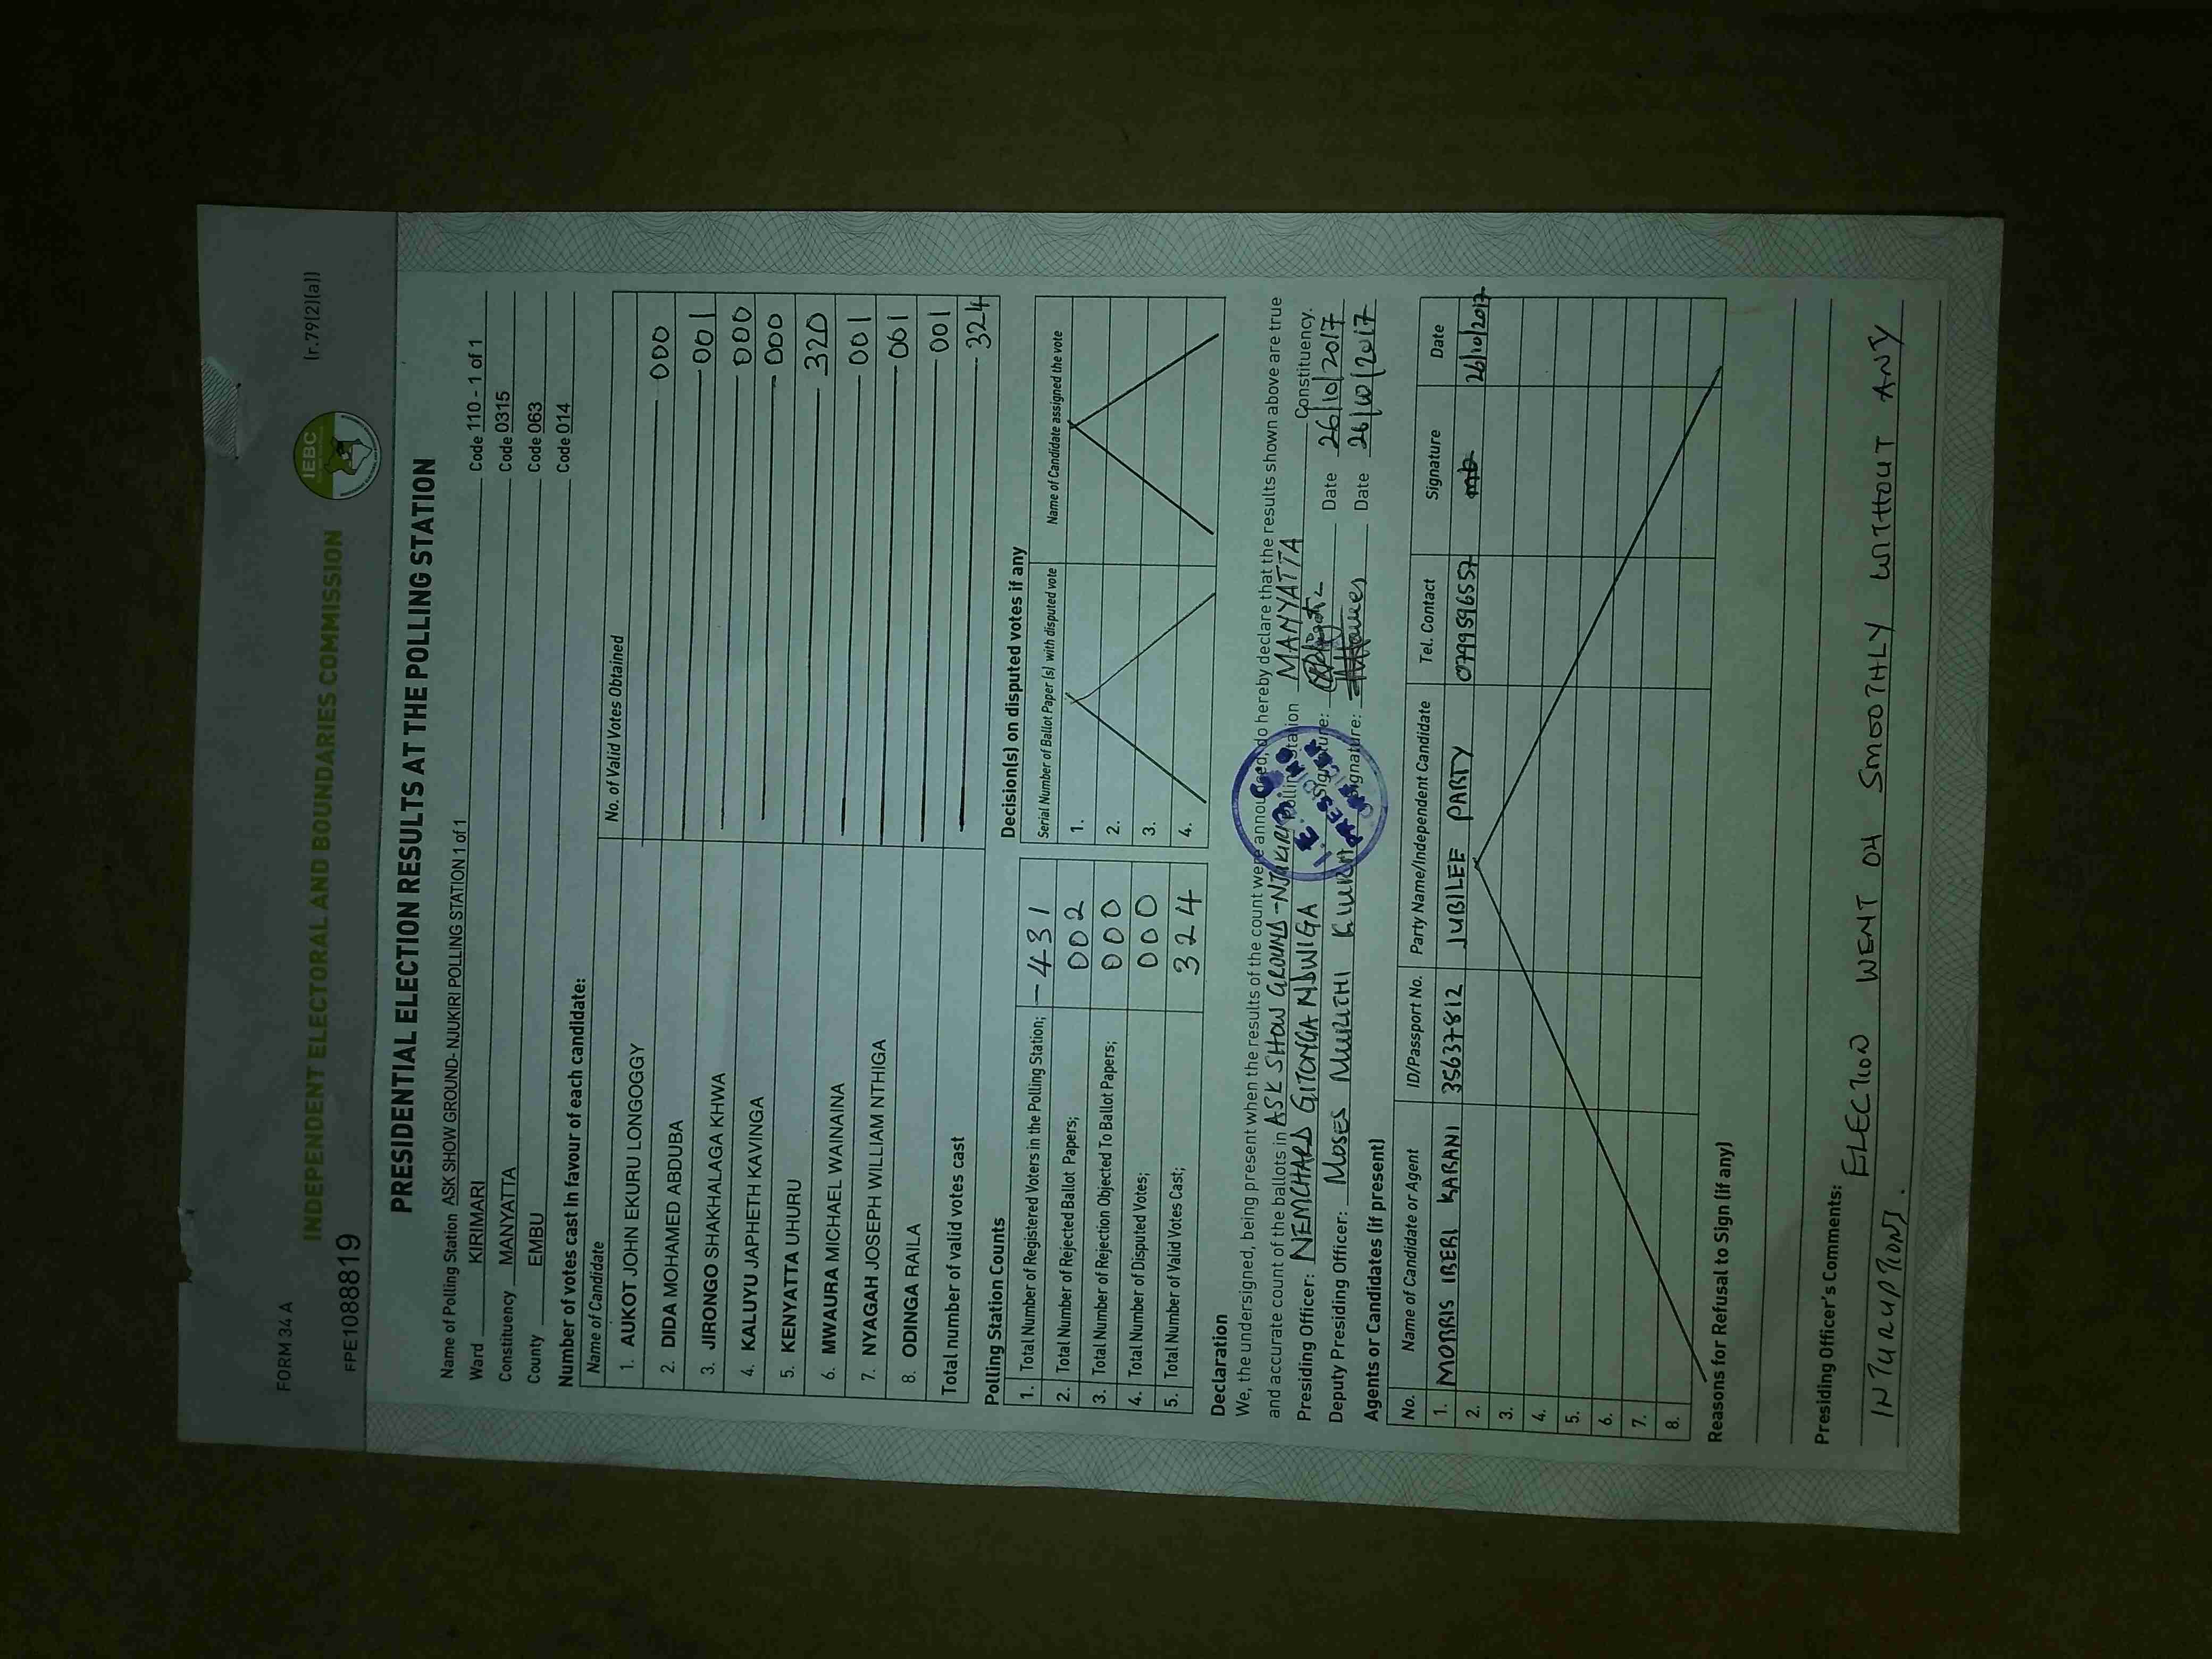 FORM 34 A
(r.79(2)(a))
INDEPENDENT ELECTORAL AND BOUNDARIES COMMISSION
IEBC
FPE1088819
PRESIDENTIAL ELECTION RESULTS AT THE POLLING STATION
Name of Polling Station ASK SHOW GROUND- NJUKIRI POLLING STATION 1 of 1 Code 110 - 1 of 1
Ward KIRIMARI Code 0315
Constituency MANYATTA Code 063
County EMBU Code 014
Number of votes cast in favour of each candidate:
Name of Candidate No. of Valid Votes Obtained
1. AUKOT JOHN EKURU LONGOGGY 000
2. DIDA MOHAMED ABDUBA 001
3. JIRONGO SHAKHALAGA KHWA 000
4. KALUYU JAPHETH KAVINGA 000
5. KENYATTA UHURU 320
6. MWAURA MICHAEL WAINAINA 001
7. NYAGAH JOSEPH WILLIAM NTHIGA 001
8. ODINGA RAILA 001
Total number of valid votes cast 324
Polling Station Counts
1. Total Number of Registered Voters in the Polling Station; - 431
2. Total Number of Rejected Ballot Papers; 002
3. Total Number of Rejection Objected To Ballot Papers; 000
4. Total Number of Disputed Votes; 000
5. Total Number of Valid Votes Cast; 324
Decision(s) on disputed votes if any
Serial Number of Ballot Paper (s) with disputed vote Name of Candidate assigned the vote
1.
2.
3.
4.
Declaration
We, the undersigned, being present when the results of the count were announced, do hereby declare that the results shown above are true
and accurate count of the ballots in ASK SHOW GROUND-NJUKIRI Polling Station MANYATTA Constituency.
Presiding Officer: NEMCHARD GITONGA NDWIGA Signature: Date 26/10/2017
Deputy Presiding Officer: MOSES MURIITHI Signature: Date 26/10/2017
I.E.B.C. PRESIDING OFFICER
Agents or Candidates (if present)
No. Name of Candidate or Agent ID/Passport No. Party Name/Independent Candidate Tel. Contact Signature Date
1. MORRIS IBERI KARANI 35637812 JUBILEE PARTY 0799596557 26/10/2017
2.
3.
4.
5.
6.
7.
8.
Reasons for Refusal to Sign (if any)
Presiding Officer's Comments: ELECTION WENT ON SMOOTHLY WITHOUT ANY
INTURUPTIONS.